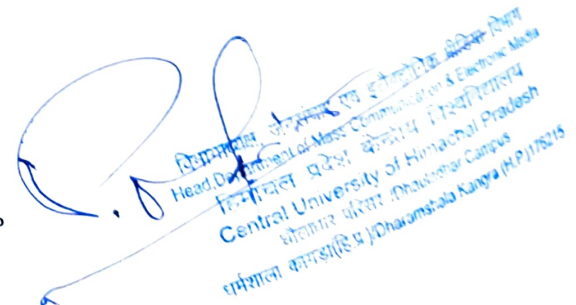 विभागाध्यक्ष जनसंचार एवं इलैक्ट्रॉनिक मीडिया विभाग
Head, Department of Mass Communication & Electronic Media
हिमाचल प्रदेश केन्द्रीय विश्वविद्यालय
Central University of Himachal Pradesh
धौलाधार परिसर /Dhauladhar Campus
धर्मशाला कांगड़ा(हि.प्र.)/Dharamshala Kangra (H.P.)176215